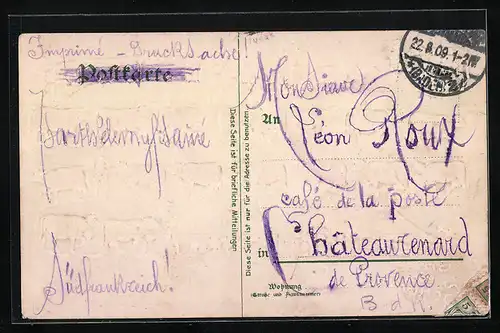 Imprimé - Drucksache!
Postkarte
Südfrankreich!
Diese Seite ist für briefliche Mitteilungen
Diese Seite ist nur für die Adresse zu benutzen
22.8.09.1-2N
Monsieur
An
Léon Roux
café de la poste
in Châteaurenard
de Provence
Wohnung
(Straße und Hausnummer)
B d R.
5